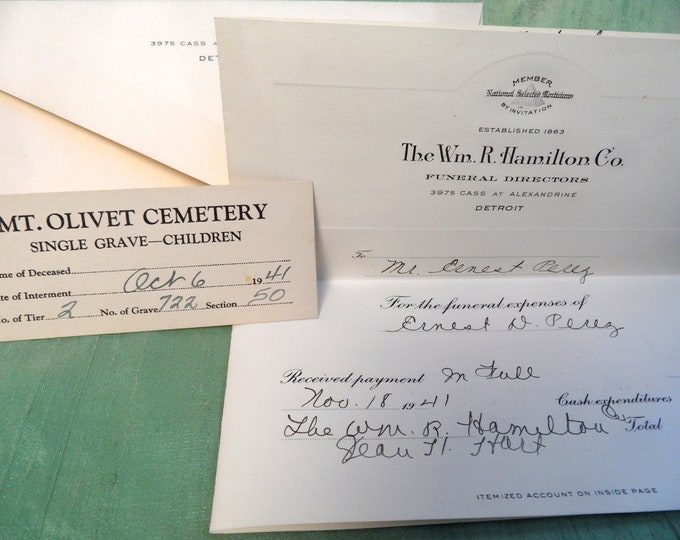 3975 CASS A
DET
MT. OLIVET CEMETERY
SINGLE GRAVE—CHILDREN
me of Deceased
ate of Interment Oct 6 1941
o. of Tier 2 No. of Grave 722 Section 50
MEMBER
National Selected Morticians
BY INVITATION
ESTABLISHED 1863
The Wm. R. Hamilton Co.
FUNERAL DIRECTORS
3975 CASS AT ALEXANDRINE
DETROIT
To Mr. Ernest Perez
For the funeral expenses of
Ernest D. Perez
Received payment In Full
Nov. 18 1941 Cash expenditures
The Wm. R. Hamilton Co Total
Jean H. Hart
ITEMIZED ACCOUNT ON INSIDE PAGE